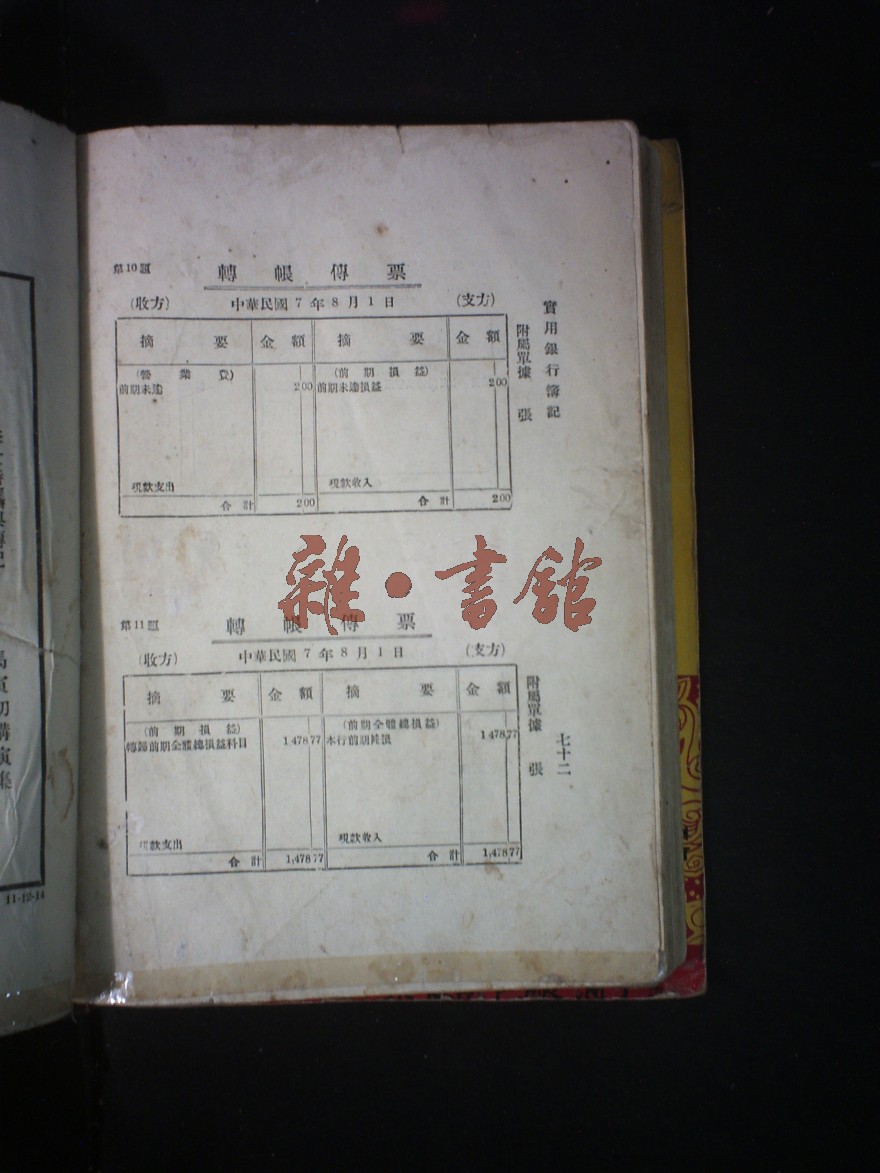 實用銀行簿記
第10題
轉帳傳票
(收方) 中華民國7年8月1日 (支方)
摘要 金額 摘要 金額
(營業費) (前期損益)
前期未達 200 前期未達損益 200
現款支出 現款收入
合計 200 合計 200
附屬單據 張
雜·書館
第11題
轉帳傳票
(收方) 中華民國7年8月1日 (支方)
摘要 金額 摘要 金額
(前期損益) (前期全體總損益)
轉歸前期全體總損益科目 1,478.77 本行前期純損 1,478.77
現款支出 現款收入
合計 1,478.77 合計 1,478.77
附屬單據 張
七十二
馬寅初講演集
11-12-14